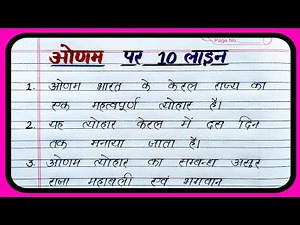 Page No.
ओणम पर 10 लाइन
1. ओणम भारत के केरल राज्य का
एक महत्वपूर्ण त्योहार है।
2. यह त्योहार केरल में दस दिन
तक मनाया जाता है।
3. ओणम त्योहार का सम्बन्ध असुर
राजा महाबली एवं भगवान